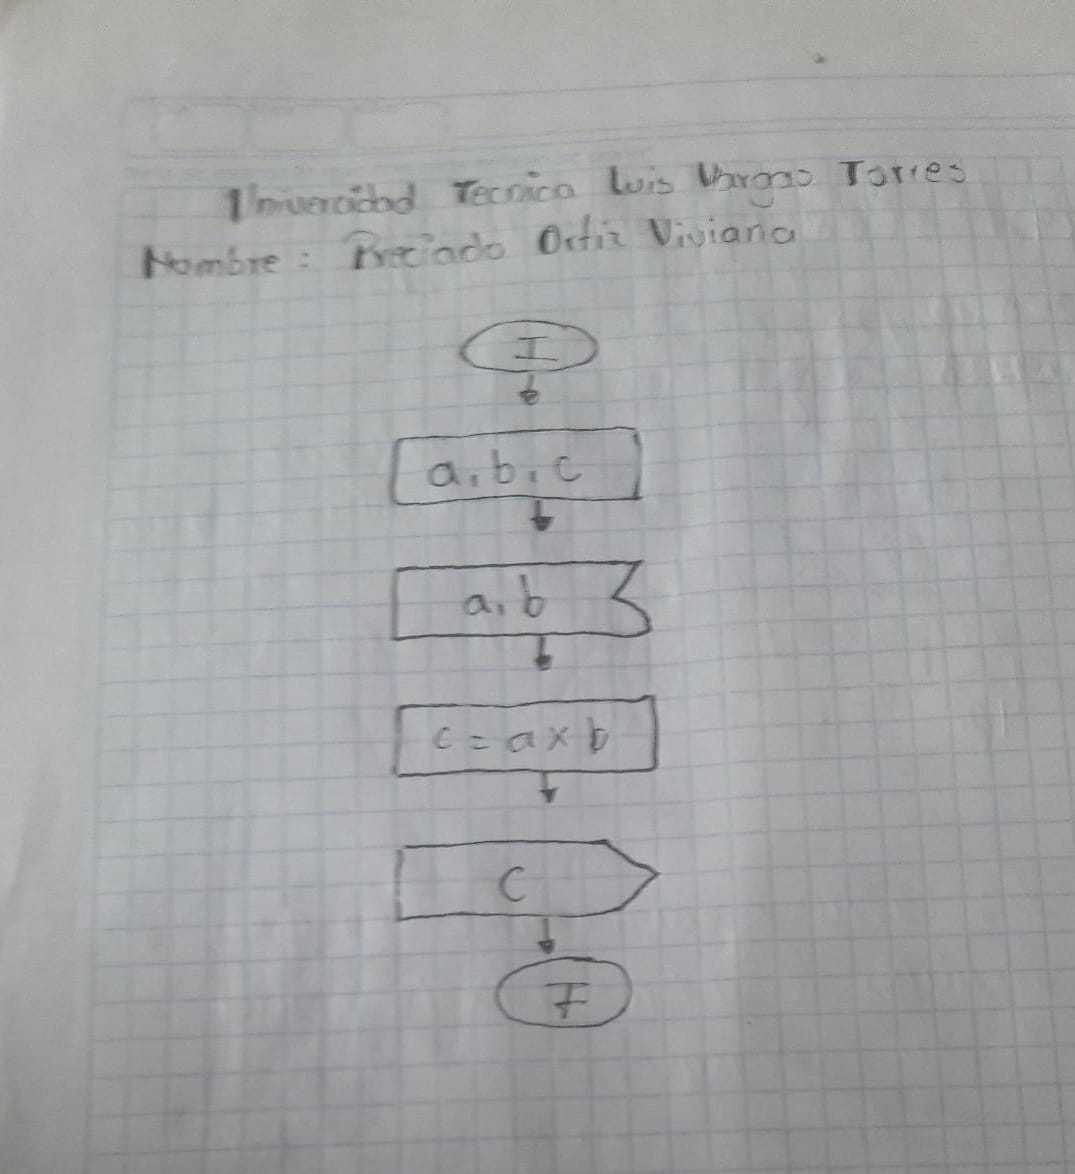 Univercidad Tecnica Luis Vargas Torres
Nombre : Preciado Ortiz Viviana
I
a, b, c
a, b
c = a x b
C
F